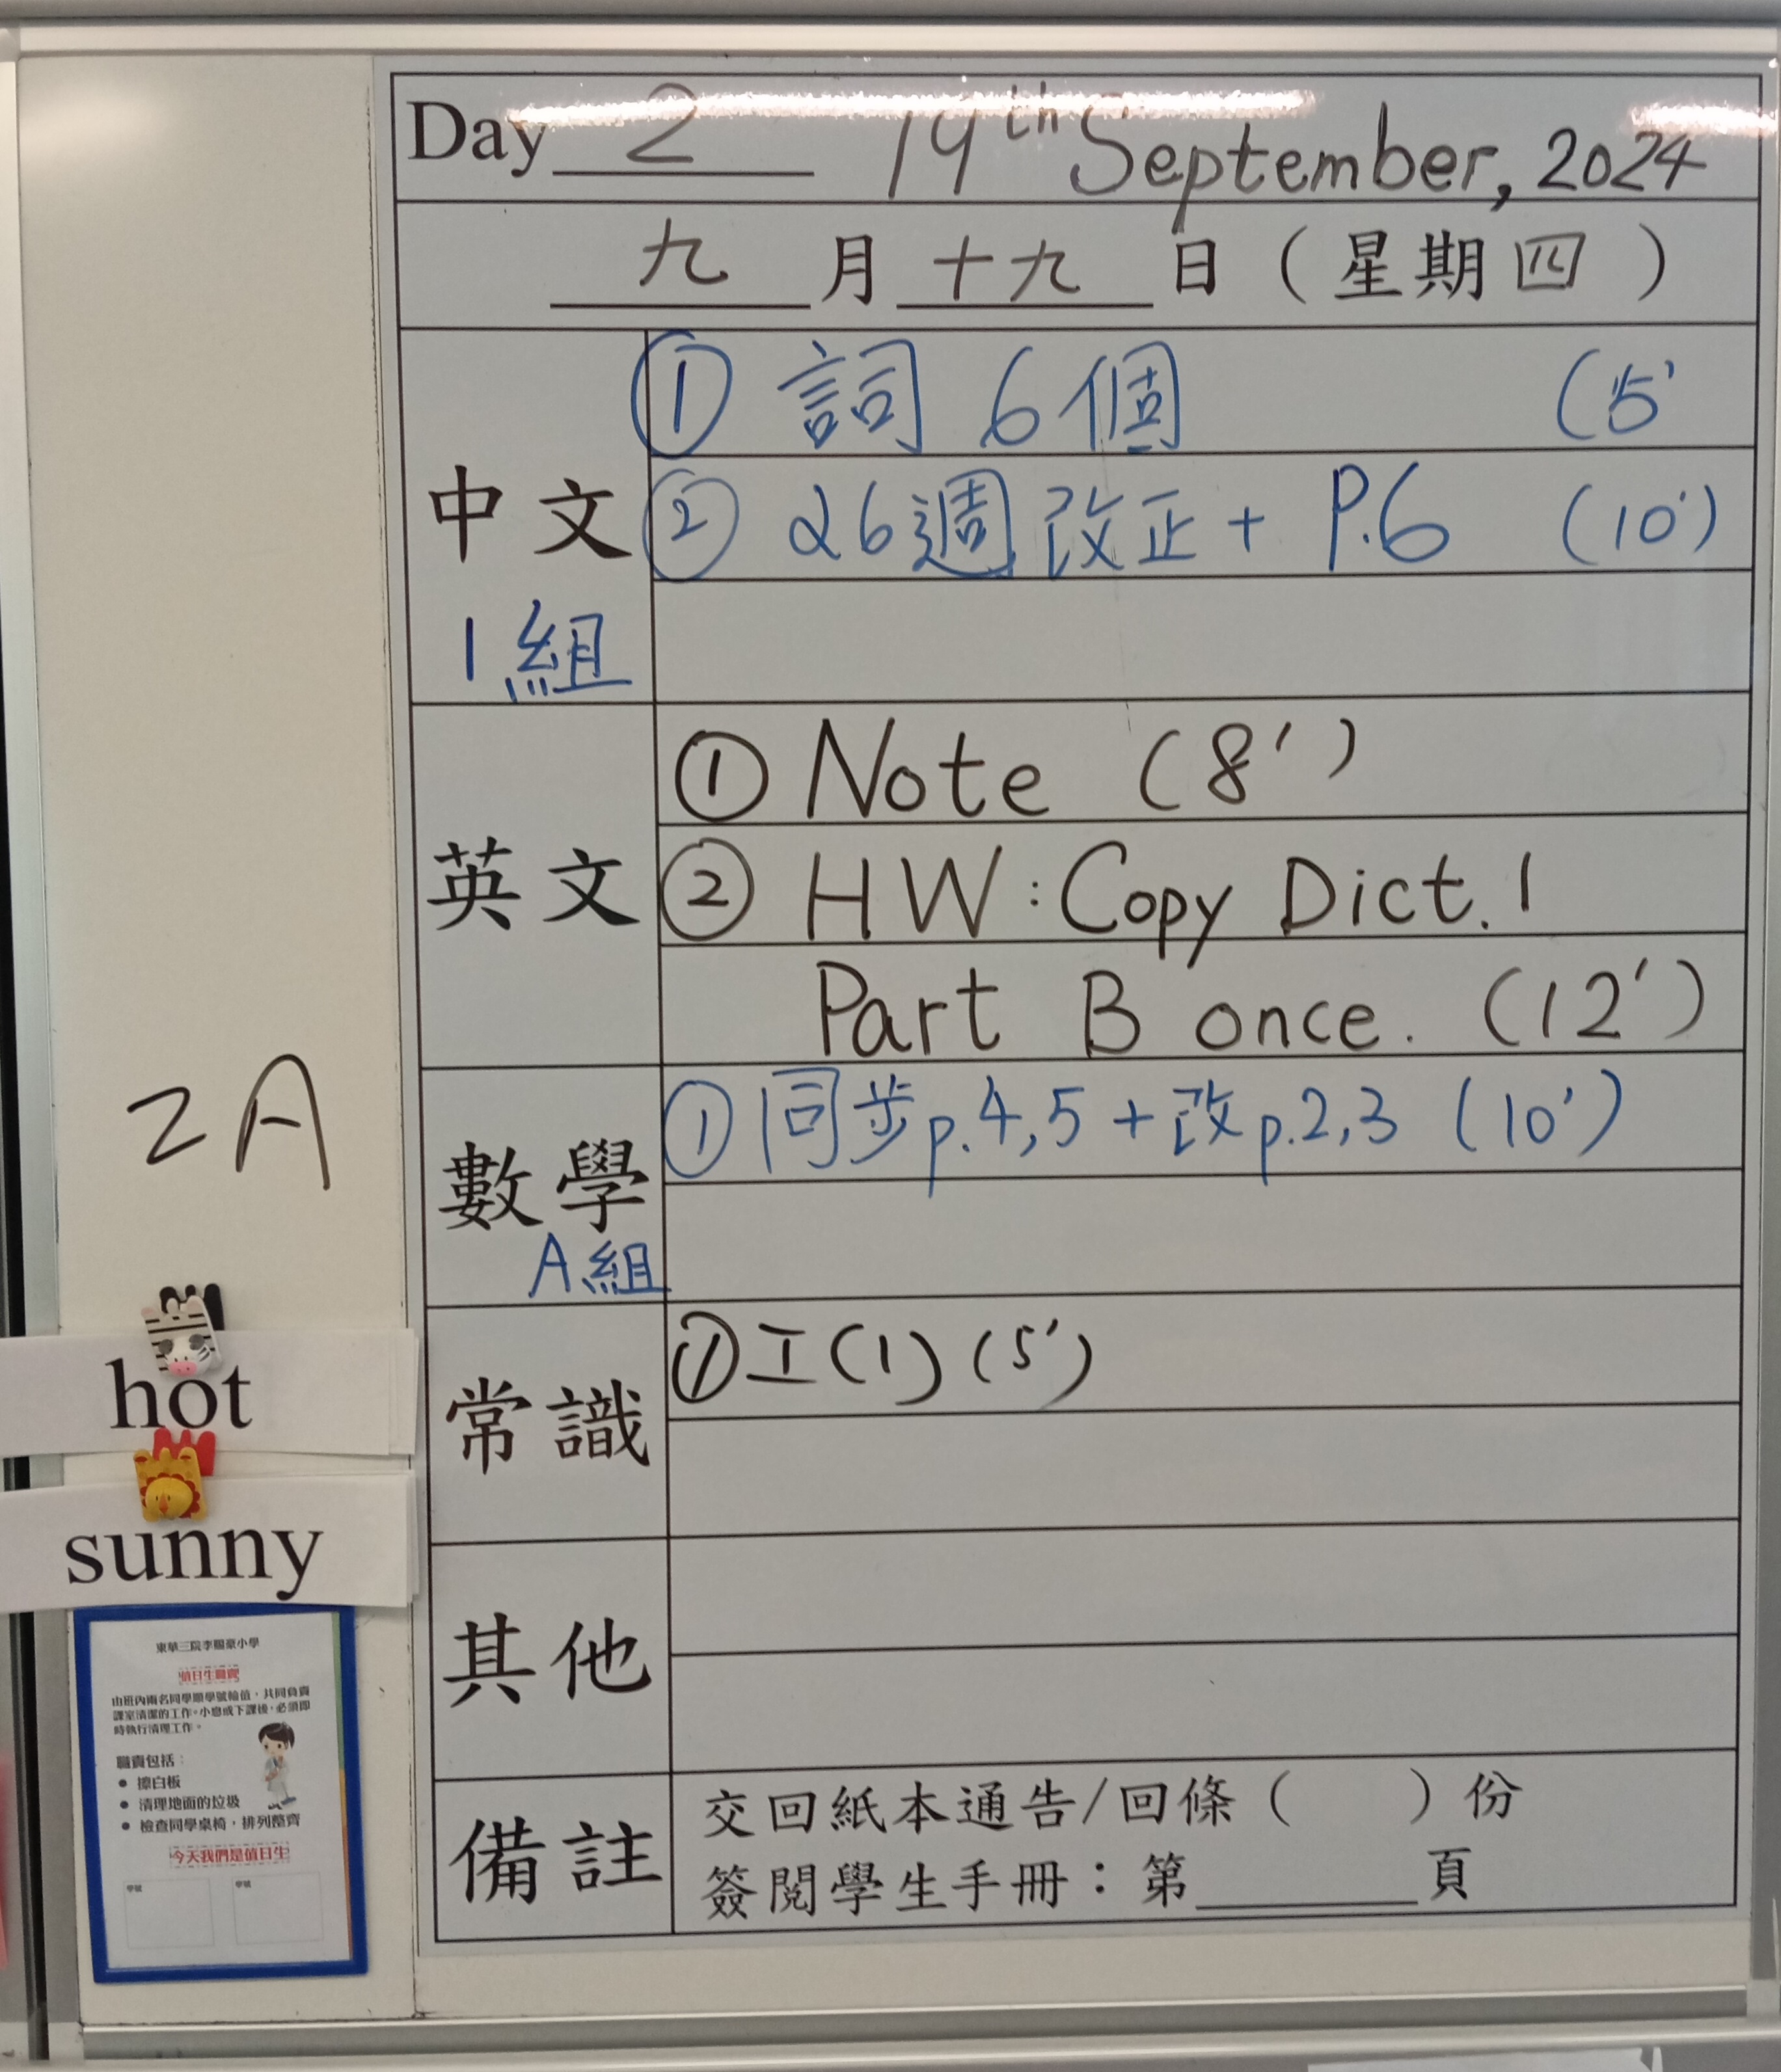 Day 2 19th September, 2024
九 月 十九 日（星期四）
中文
1組
① 詞 6個 (5'
② 26週 改正 + P.6 (10')
英文
① Note (8')
② HW : Copy Dict. 1
Part B once. (12')
數學
A組
① 同步 p.4,5 + 改 p.2,3 (10')
常識
① 工(1) (5')
其他
備註
交回紙本通告/回條（ ）份
簽閱學生手冊：第 頁
2A
hot
sunny
東華三院李賜豪小學
值日生職責
由班內兩名同學順學號輪值，共同負責
課室清潔的工作。小息或下課後，必須即
時執行清理工作。
職責包括：
● 擦白板
● 清理地面的垃圾
● 檢查同學桌椅，排列整齊
今天我們是值日生
學號 學號